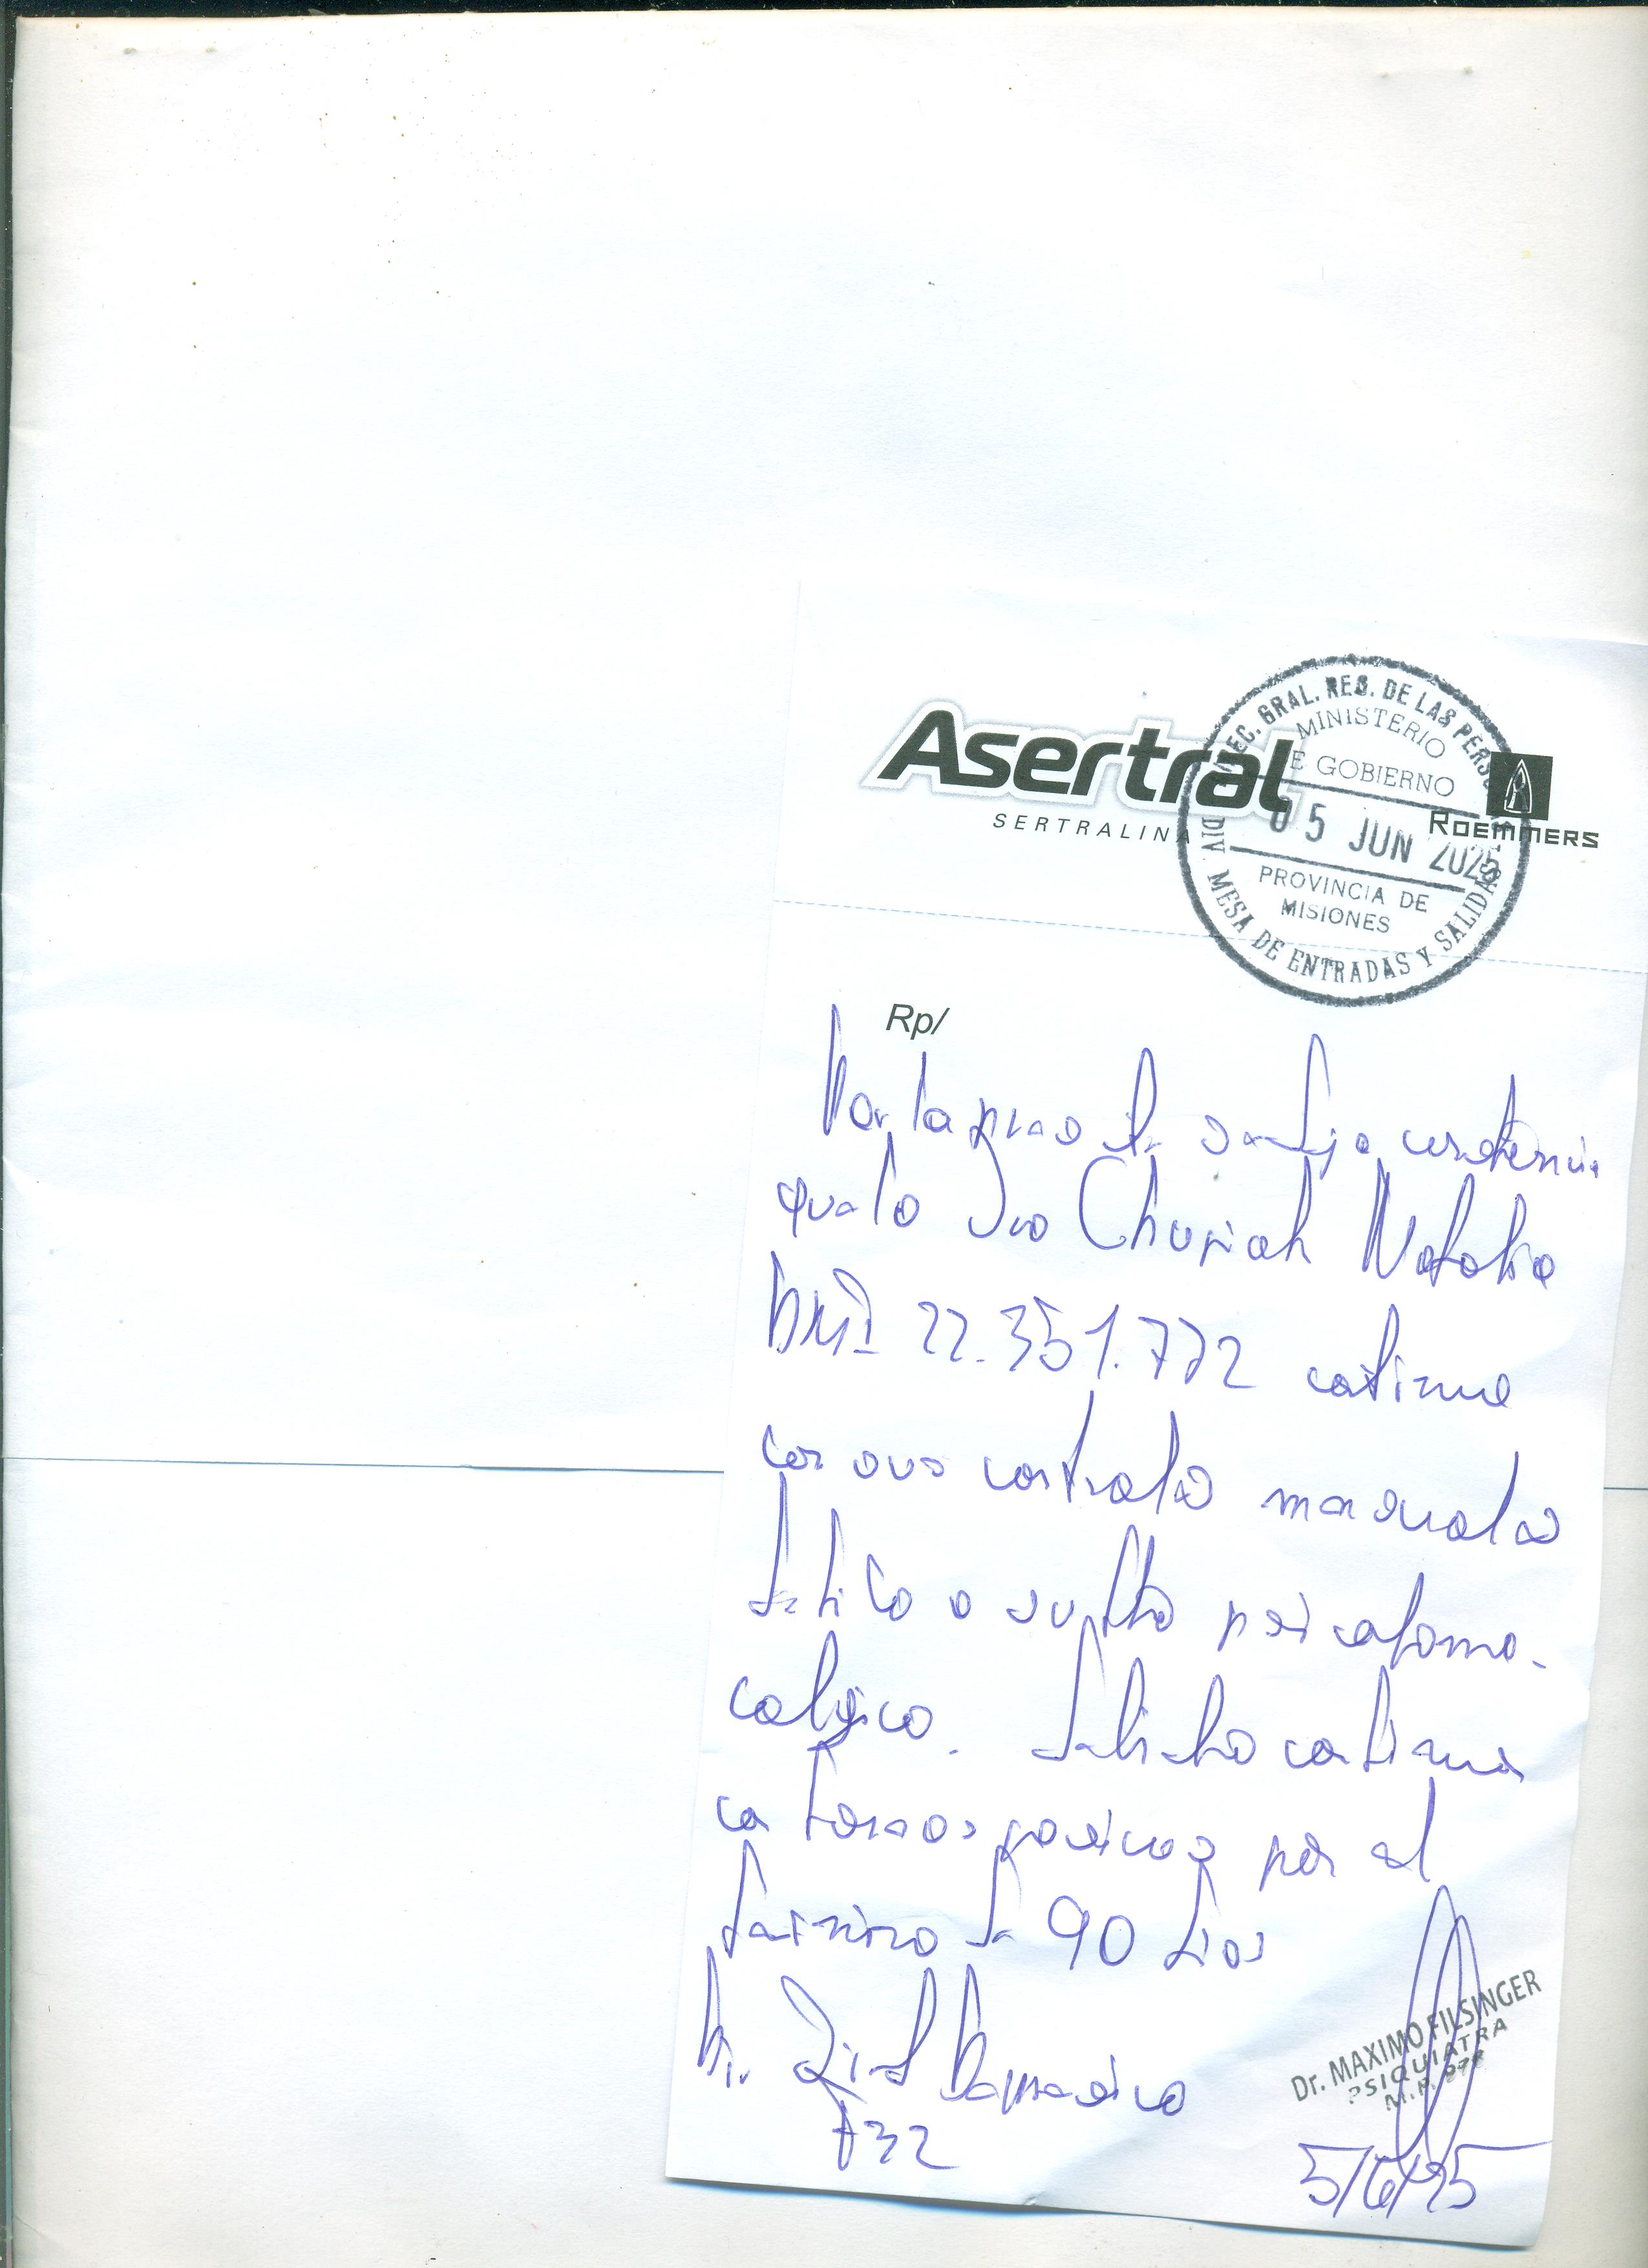 Asertral
SERTRALINA
ROEMMERS
REC. GRAL. RES. DE LAS PERSONAS
MINISTERIO
DE GOBIERNO
05 JUN 2025
PROVINCIA DE
MISIONES
DIV. MESA DE ENTRADAS Y SALIDAS
Rp/
Por la presente se deja constancia
que la Sra Chupiak Natalia
DNI 22.351.772 continua
con sus controles mensuales
debido a su tto psicofarma-
cologico. Debiendo continuar
con tareas pasivas por el
termino de 90 dias
Dr. MAXIMO FILSINGER
PSIQUIATRA
Dx. Sind Depresivo
F32
5/6/25